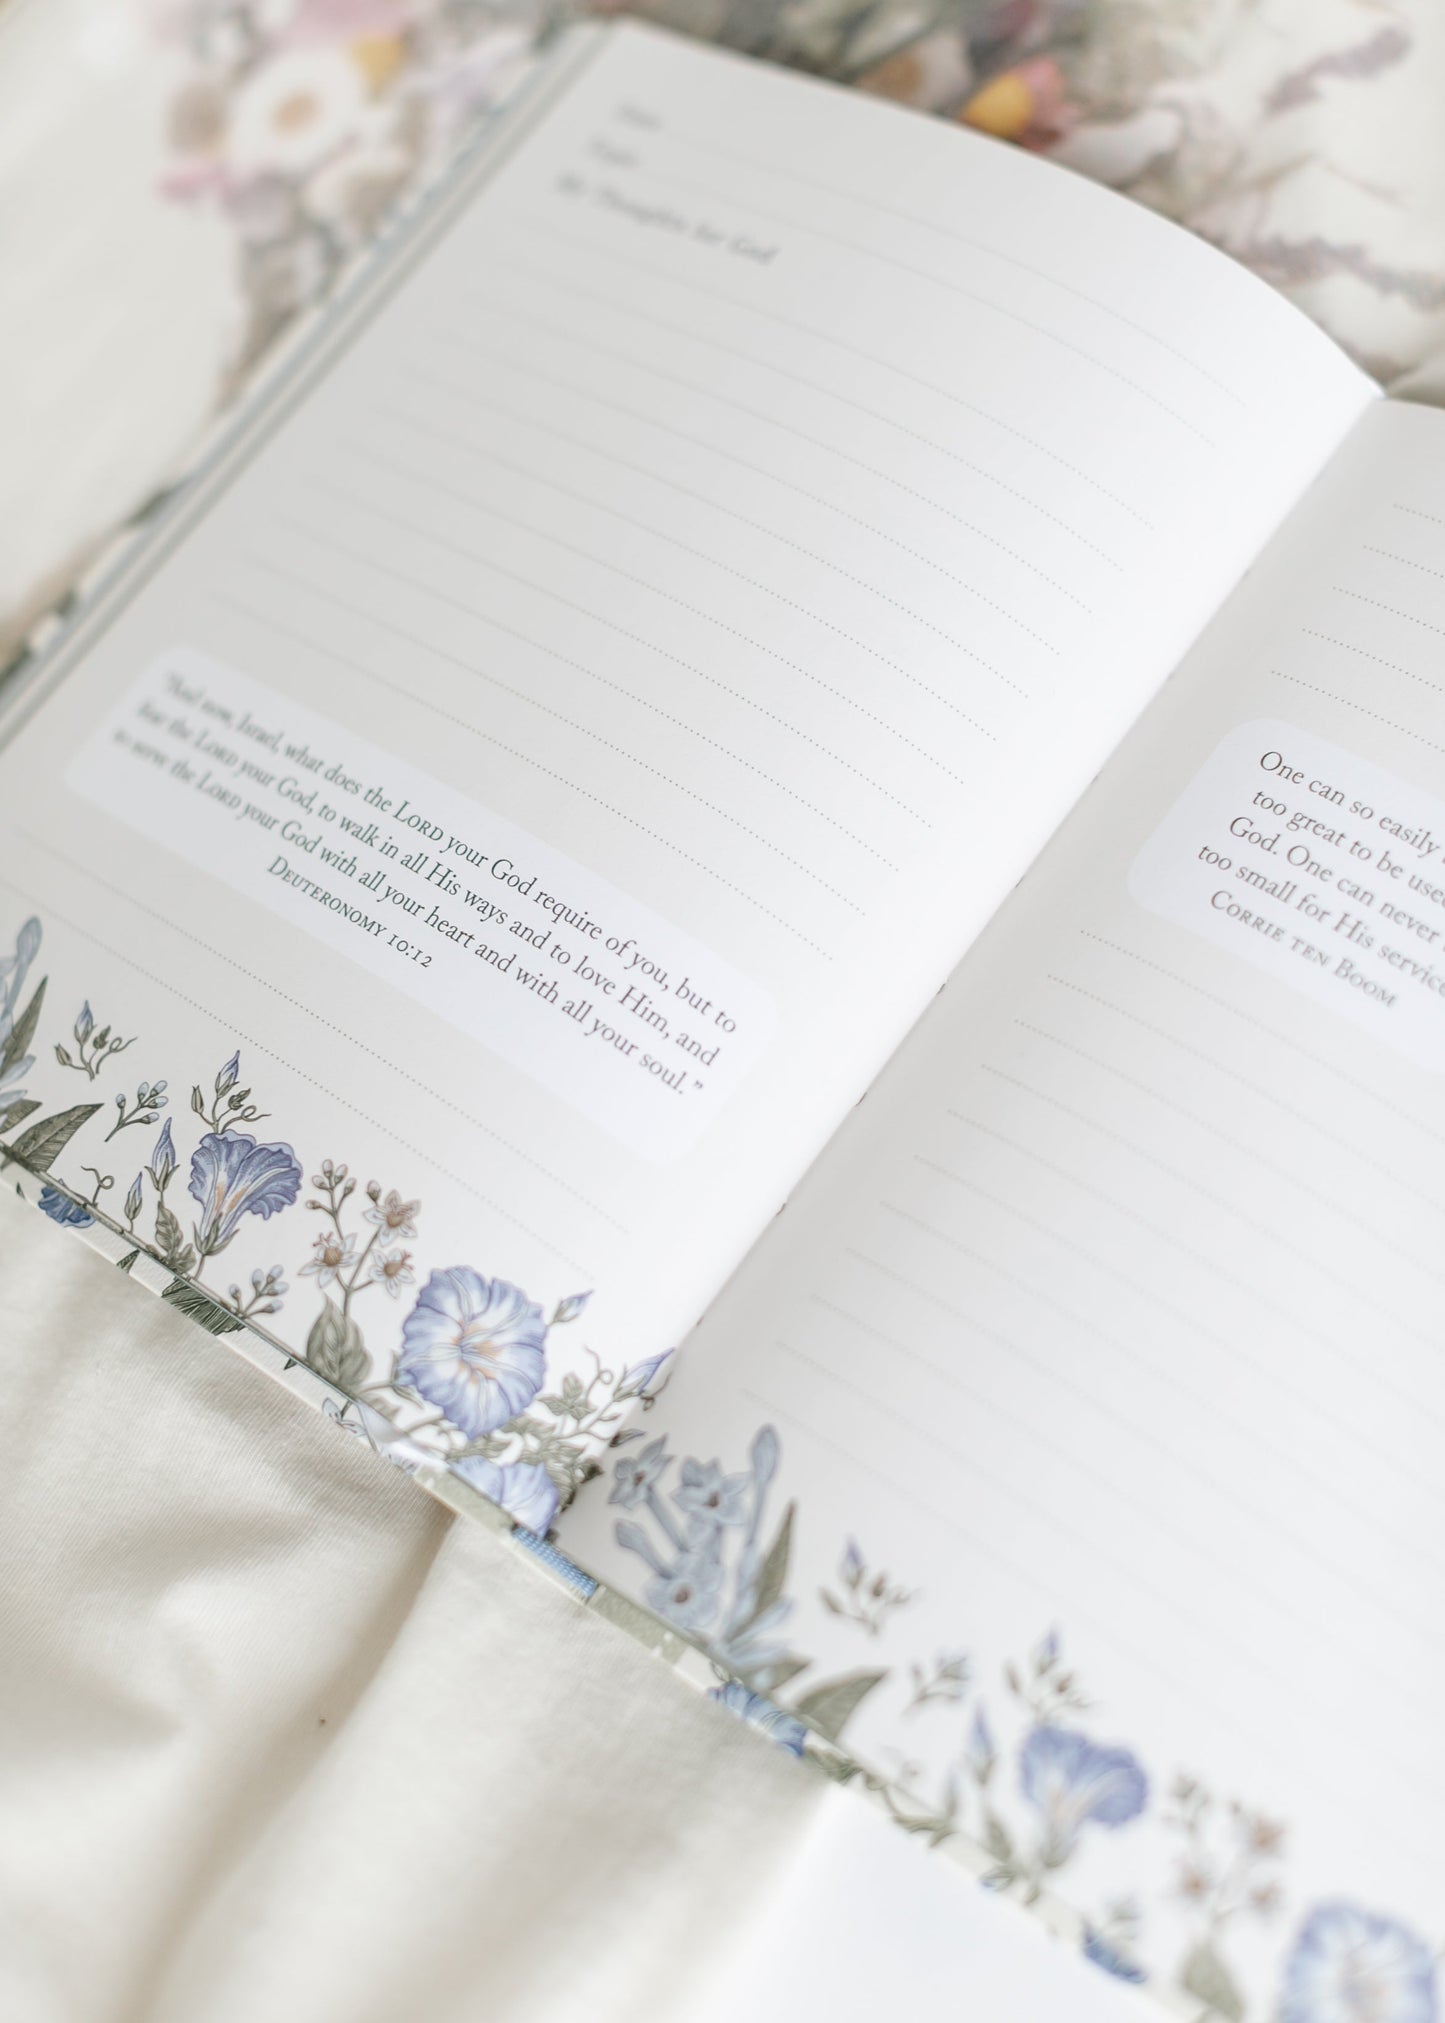 My Thoughts for God
"And now, Israel, what does the LORD your God require of you, but to
fear the LORD your God, to walk in all His ways and to love Him, and
to serve the LORD your God with all your heart and with all your soul."
DEUTERONOMY 10:12
One can so easily
too great to be used
God. One can never
too small for His service
CORRIE TEN BOOM